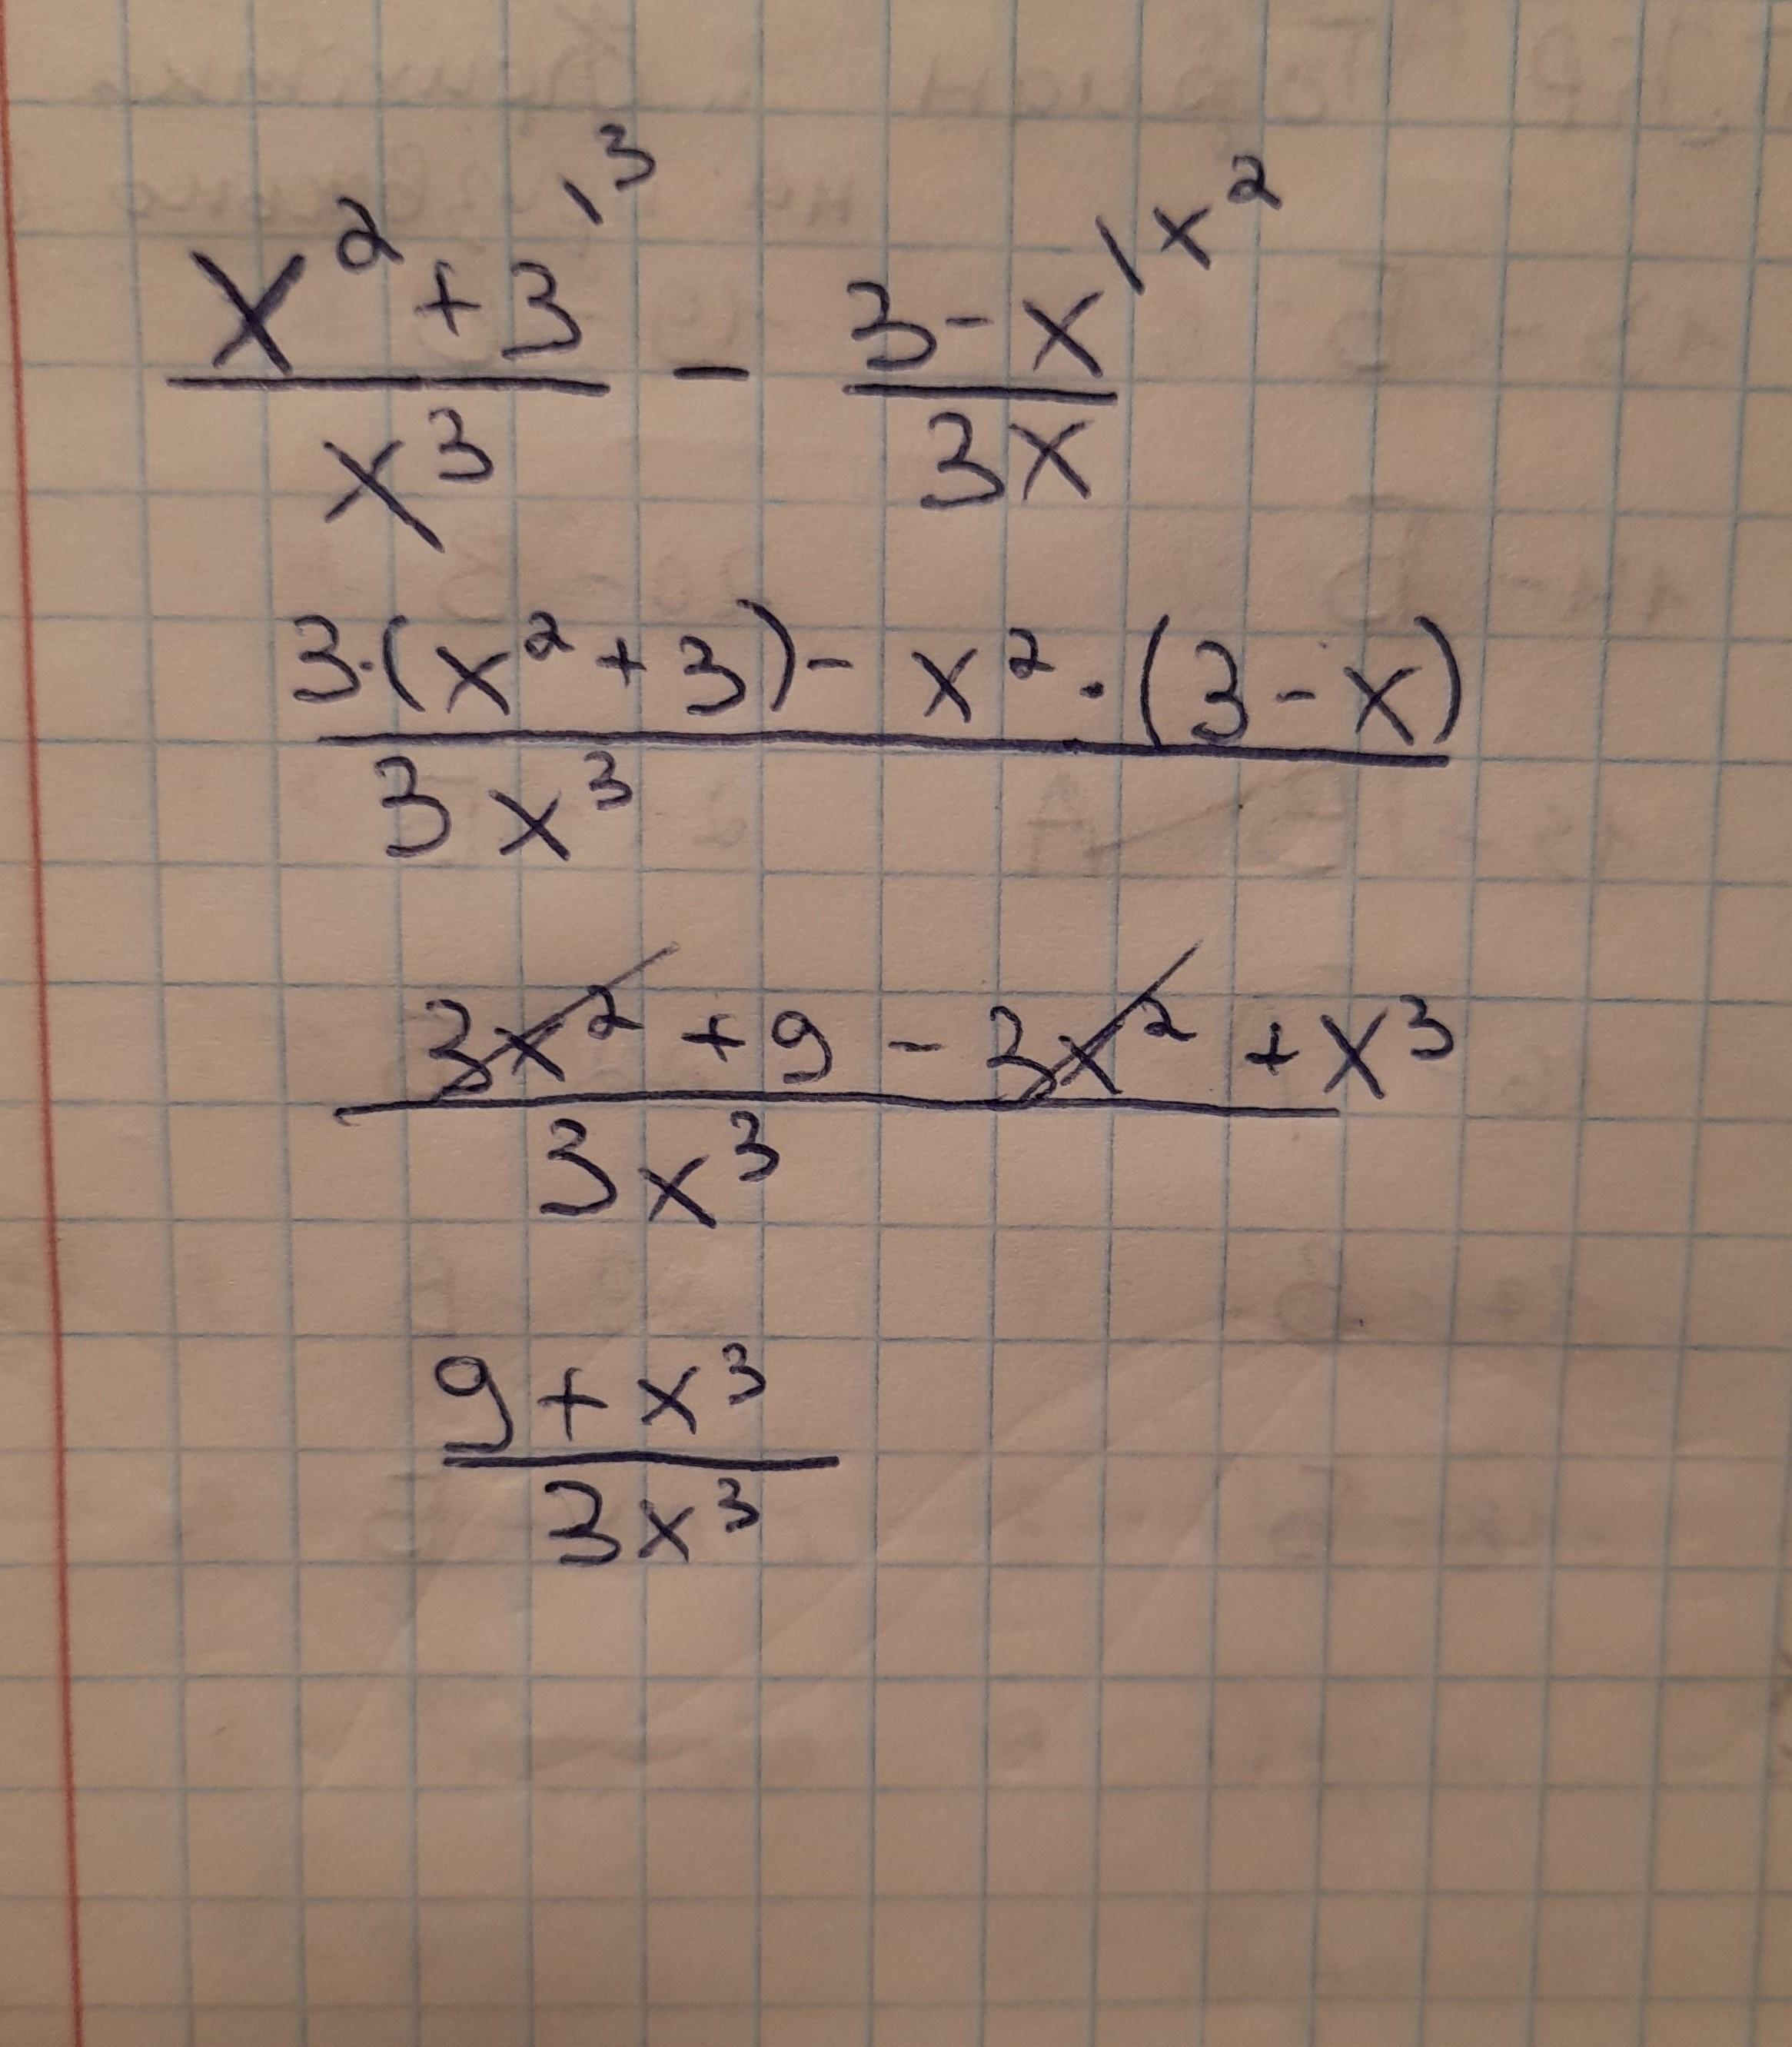 x² + 3 \ 3
x³
-
3 - x \ x²
3x
3·(x² + 3) - x² · (3 - x)
3x³
3x² + 9 - 3x² + x³
3x³
9 + x³
3x³